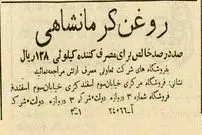 روغن کرمانشاهی
صددرصد خالص برای مصرف کننده کیلوئی ۱۲۸ ریال
بفروشگاه های شرکت تعاونی مصرف ارتش مراجعه نمائید
نشانی: فروشگاه مرکزی خیابان سوم اسفند
فروشگاه شماره ۳ دروازه دولت
آ-۲۴۰۶۶ ۳-۱